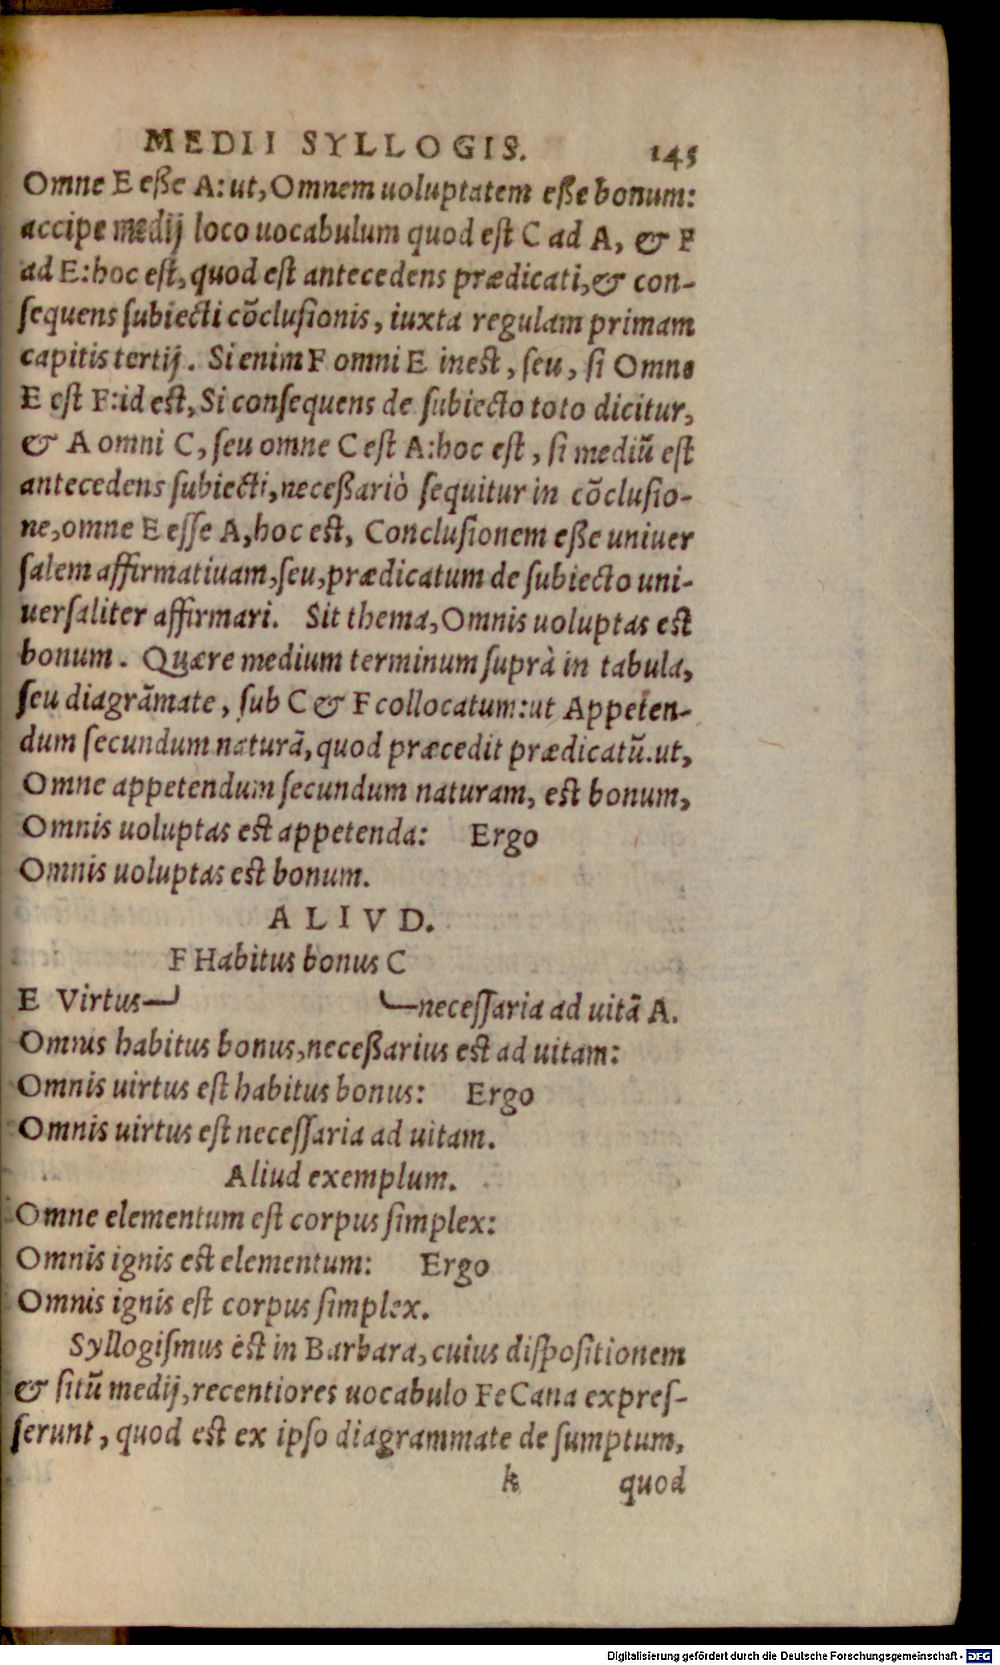 MEDII SYLLOGIS. 145
Omne E eße A: ut, Omnem uoluptatem eße bonum:
accipe medij loco uocabulum quod est C ad A, & F
ad E: hoc est, quod est antecedens prædicati, & con-
sequens subiecti cõclusionis, iuxta regulam primam
capitis tertij. Si enim F omni E inest, seu, si Omne
E est F: id est, Si consequens de subiecto toto dicitur,
& A omni C, seu omne C est A: hoc est, si mediũ est
antecedens subiecti, neceßariò sequitur in cõclusio-
ne, omne E esse A, hoc est, Conclusionem eße uniuer
salem affirmatiuam, seu, prædicatum de subiecto uni-
uersaliter affirmari. Sit thema, Omnis uoluptas est
bonum. Quære medium terminum suprà in tabula,
seu diagrãmate, sub C & F collocatum: ut Appeten-
dum secundum naturã, quod præcedit prædicatũ. ut,
Omne appetendum secundum naturam, est bonum,
Omnis uoluptas est appetenda: Ergo
Omnis uoluptas est bonum.
ALIVD.
F Habitus bonus C
E Virtus necessaria ad uitã A.
Omnis habitus bonus, neceßarius est ad uitam:
Omnis uirtus est habitus bonus: Ergo
Omnis uirtus est necessaria ad uitam.
Aliud exemplum.
Omne elementum est corpus simplex:
Omnis ignis est elementum: Ergo
Omnis ignis est corpus simplex.
Syllogismus est in Barbara, cuius dispositionem
& sitũ medij, recentiores uocabulo FeCana expres-
serunt, quod est ex ipso diagrammate de sumptum,
k quod
Digitalisierung gefördert durch die Deutsche Forschungsgemeinschaft - DFG